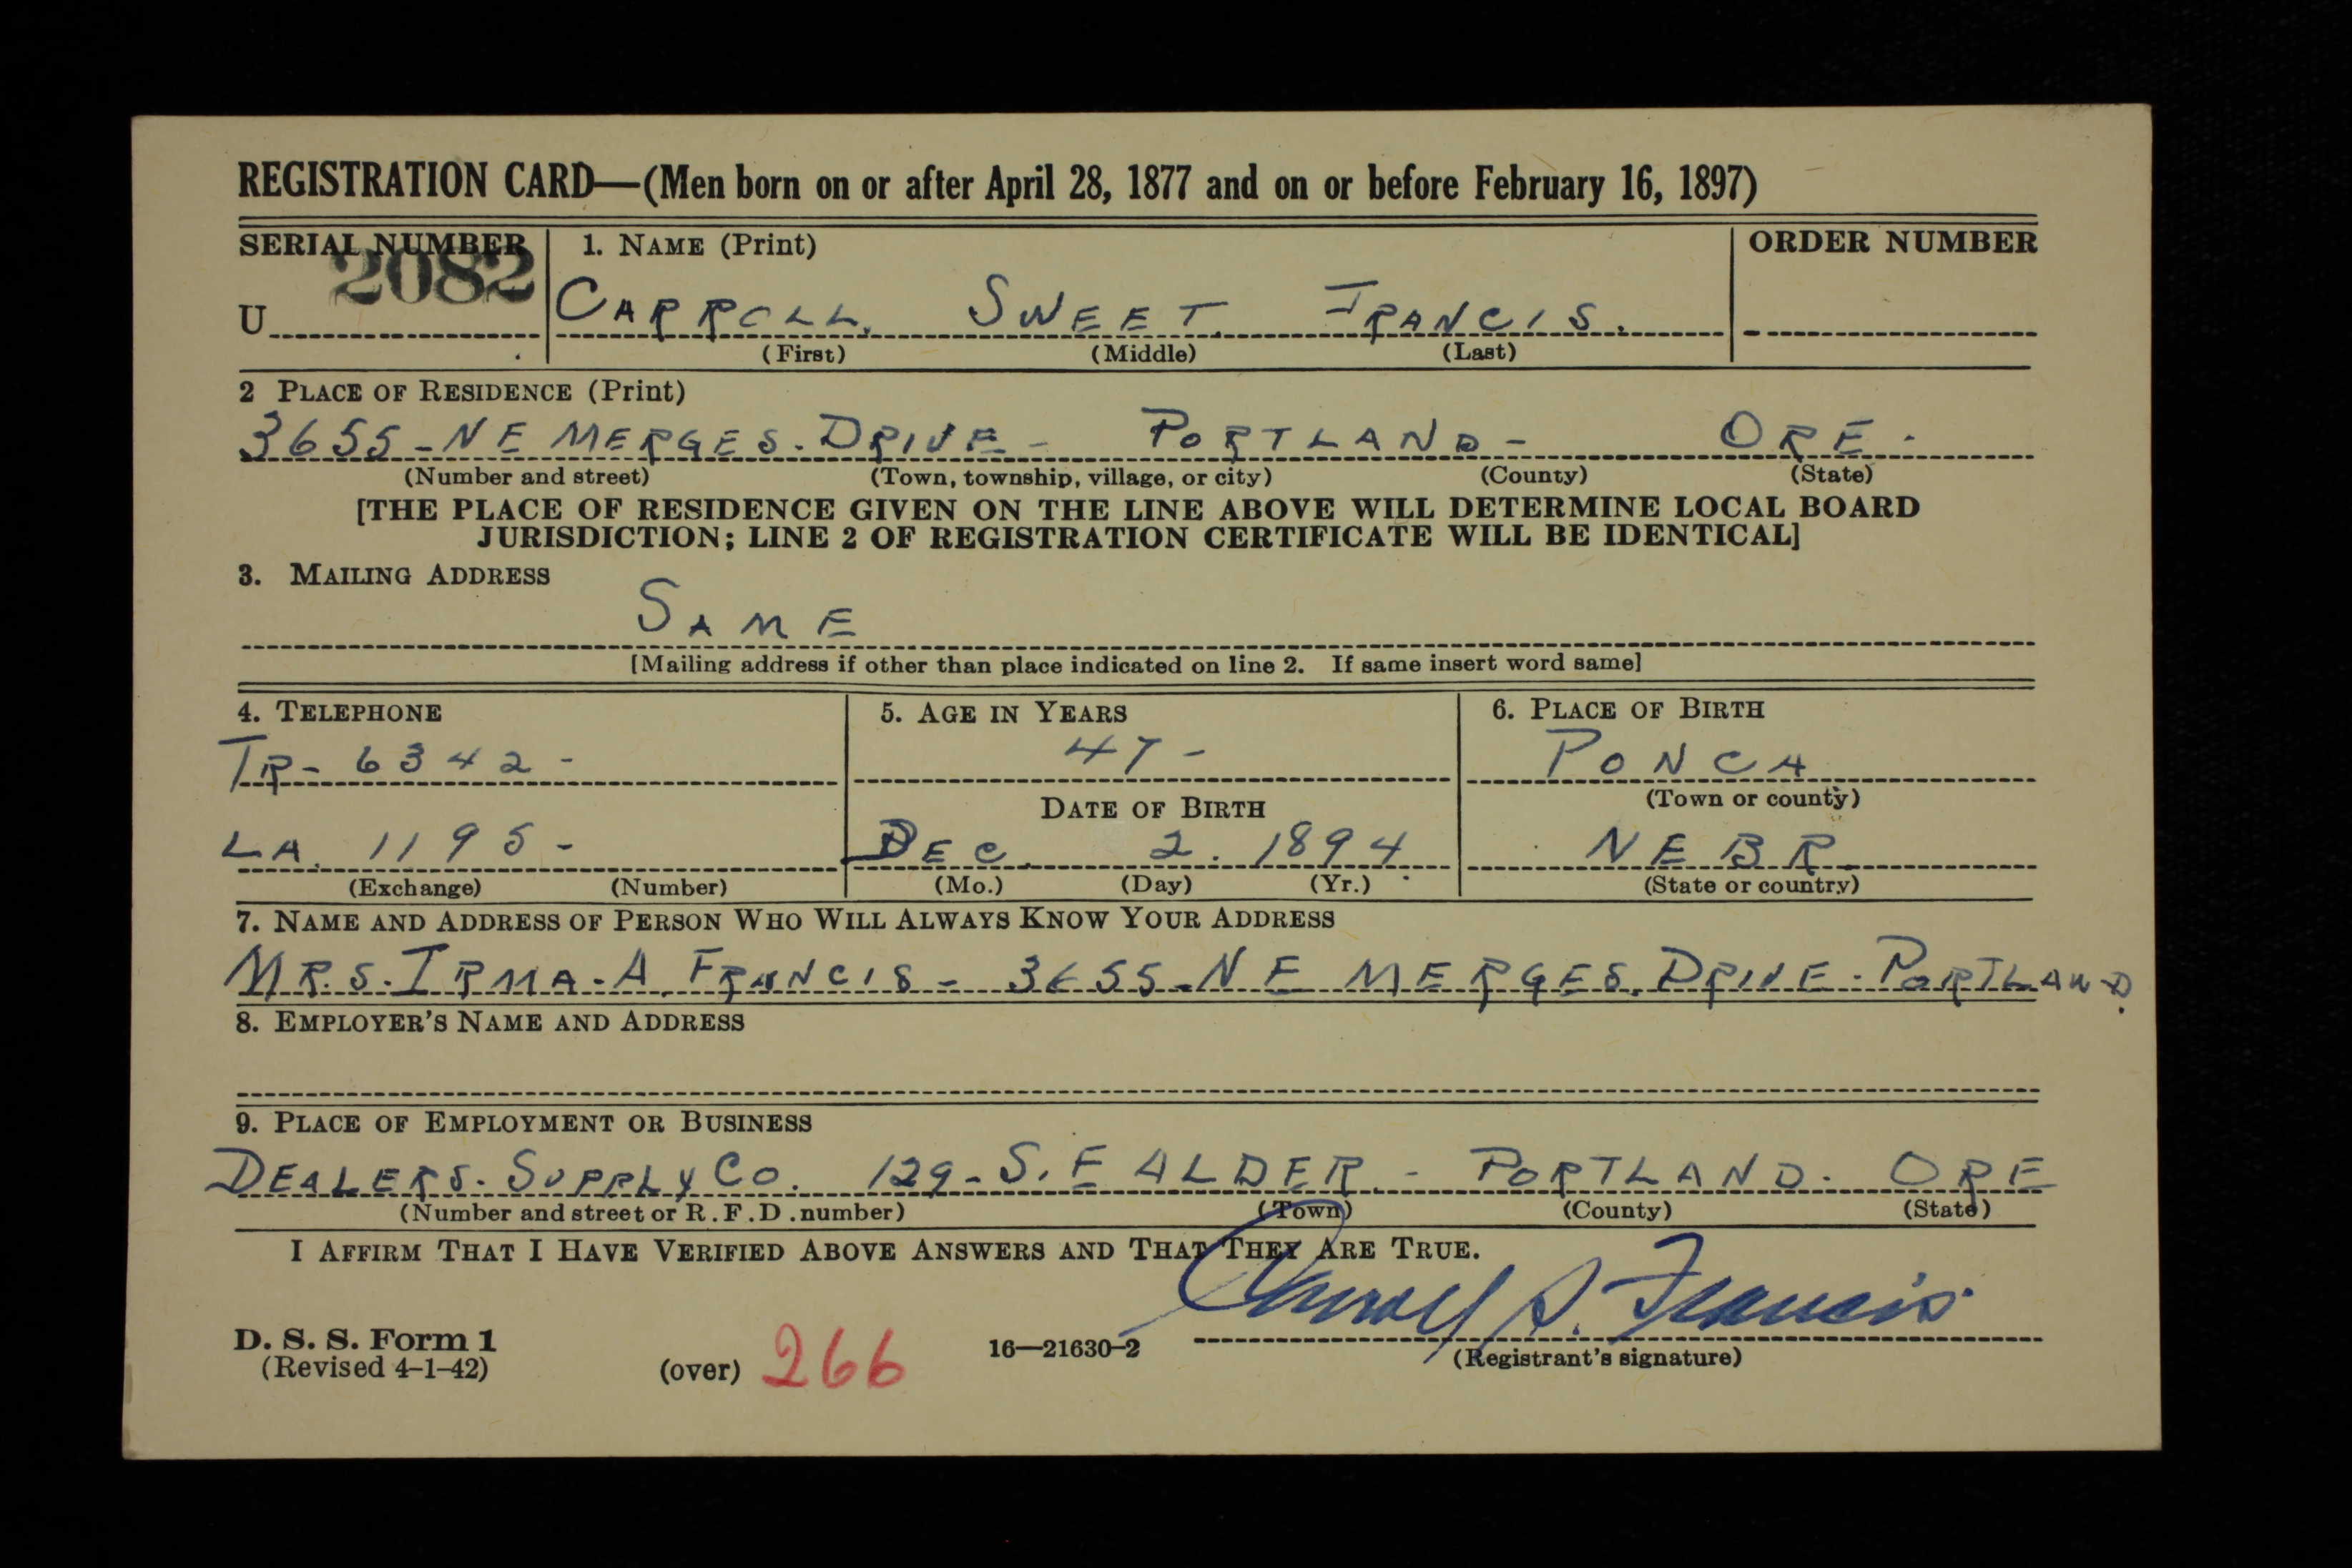 REGISTRATION CARD—(Men born on or after April 28, 1877 and on or before February 16, 1897)
SERIAL NUMBER 1. NAME (Print) ORDER NUMBER
U 2082 CARROLL. SWEET. FRANCIS.
(First) (Middle) (Last)
2 PLACE OF RESIDENCE (Print)
3655-NE MERGES. DRIVE - PORTLAND - ORE.
(Number and street) (Town, township, village, or city) (County) (State)
[THE PLACE OF RESIDENCE GIVEN ON THE LINE ABOVE WILL DETERMINE LOCAL BOARD
JURISDICTION; LINE 2 OF REGISTRATION CERTIFICATE WILL BE IDENTICAL]
3. MAILING ADDRESS
SAME
[Mailing address if other than place indicated on line 2. If same insert word same]
4. TELEPHONE 5. AGE IN YEARS 6. PLACE OF BIRTH
TR- 6342 - 47 - PONCA
DATE OF BIRTH (Town or county)
LA. 1195 - DEC. 2. 1894. NEBR.
(Exchange) (Number) (Mo.) (Day) (Yr.) (State or country)
7. NAME AND ADDRESS OF PERSON WHO WILL ALWAYS KNOW YOUR ADDRESS
MRS. IRMA. A. FRANCIS - 3655-NE MERGES. DRIVE. PORTLAND.
8. EMPLOYER'S NAME AND ADDRESS
9. PLACE OF EMPLOYMENT OR BUSINESS
DEALERS. SUPPLY CO. 129-S.E ALDER. - PORTLAND. ORE
(Number and street or R.F.D. number) (Town) (County) (State)
I AFFIRM THAT I HAVE VERIFIED ABOVE ANSWERS AND THAT THEY ARE TRUE.
Carroll S. Francis
D. S. S. Form 1
(Revised 4-1-42) (over) 266 16—21630-2 (Registrant's signature)